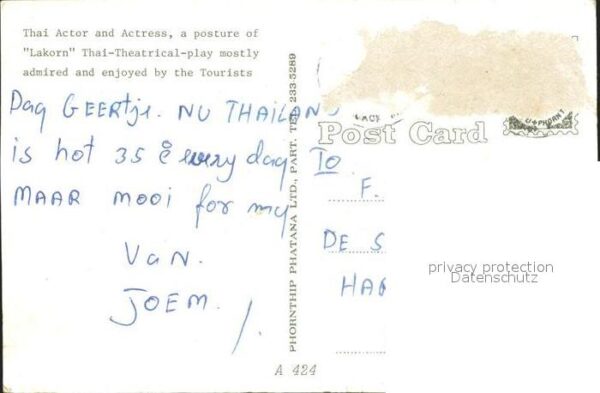 Thai Actor and Actress, a posture of
"Lakorn" Thai-Theatrical-play mostly
admired and enjoyed by the Tourists
Dag GEERTJE. NU THAILAND
is hot 35 every day
MAAR mooi for my
VaN.
JOEM.
PHORNTHIP PHATANA LTD., PART. TEL. 233-5289
Post Card
TO
F.
DE S
HA
privacy protection
Datenschutz
A 424